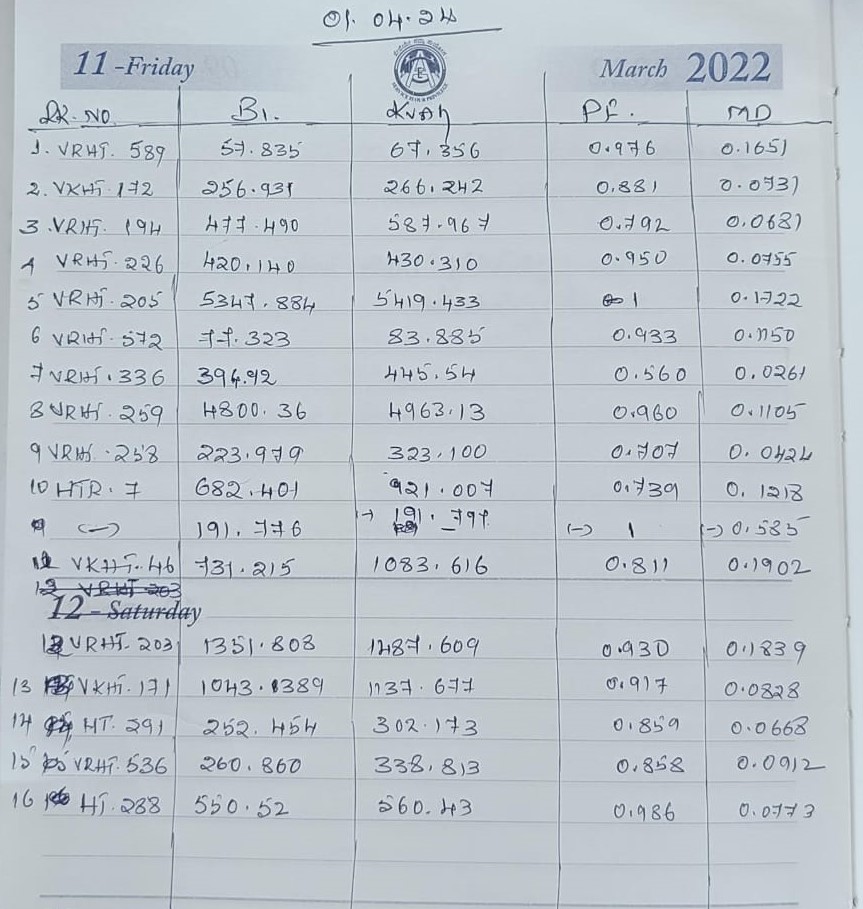 01.04.24
11-Friday March 2022
RR.NO. B1. KVAH PF. MD
1. VRHT. 589 57.835 67.356 0.976 0.1651
2. VKHT.172 256.931 266.242 0.881 0.0731
3.VRHT. 194 477.490 587.967 0.792 0.0681
4 VRHT.226 420.140 430.310 0.950 0.0755
5 VRHT.205 5347.884 5419.433 1 0.1722
6 VRHT.572 77.323 83.885 0.933 0.1150
7 VRHT.336 394.92 445.54 0.560 0.0261
8 VRHT.259 4800.36 4963.13 0.960 0.1105
9 VRHT.258 223.979 323.100 0.707 0.0424
10 HTR.7 682.401 921.007 0.739 0.1218
(-) 191.776 (-) 191.797 (-) 1 (-) 0.585
VKHT.46 731.215 1083.616 0.811 0.1902
VRHT 203
12-Saturday
12 VRHT.203 1351.808 1487.609 0.930 0.1839
13 VKHT.171 1137.677 0.917 0.0828
14 HT.291 252.454 302.173 0.859 0.0668
15 VRHT.536 260.860 338.813 0.858 0.0912
16 HT.288 550.52 560.43 0.986 0.0773